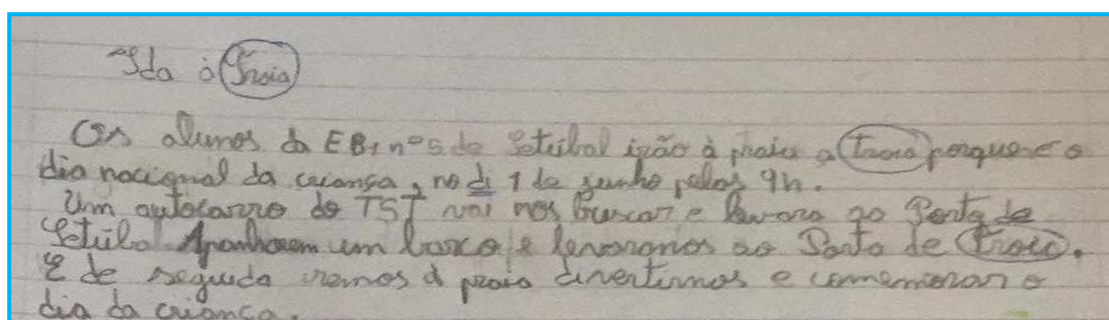 Ida à Troia
Os alunos da EB1 nº5 de Setúbal irão à praia a troia porque e o
dia nacignal da criança, no di 1 de junho pelas 9h.
Um autocarro do TST vai nos buscar e levara ao Porto de
Setúbal. Apanharem um barco e levaronos ao Porto de troia.
E de seguida iremos á praia divertirnos e comemorar o
dia da criança.